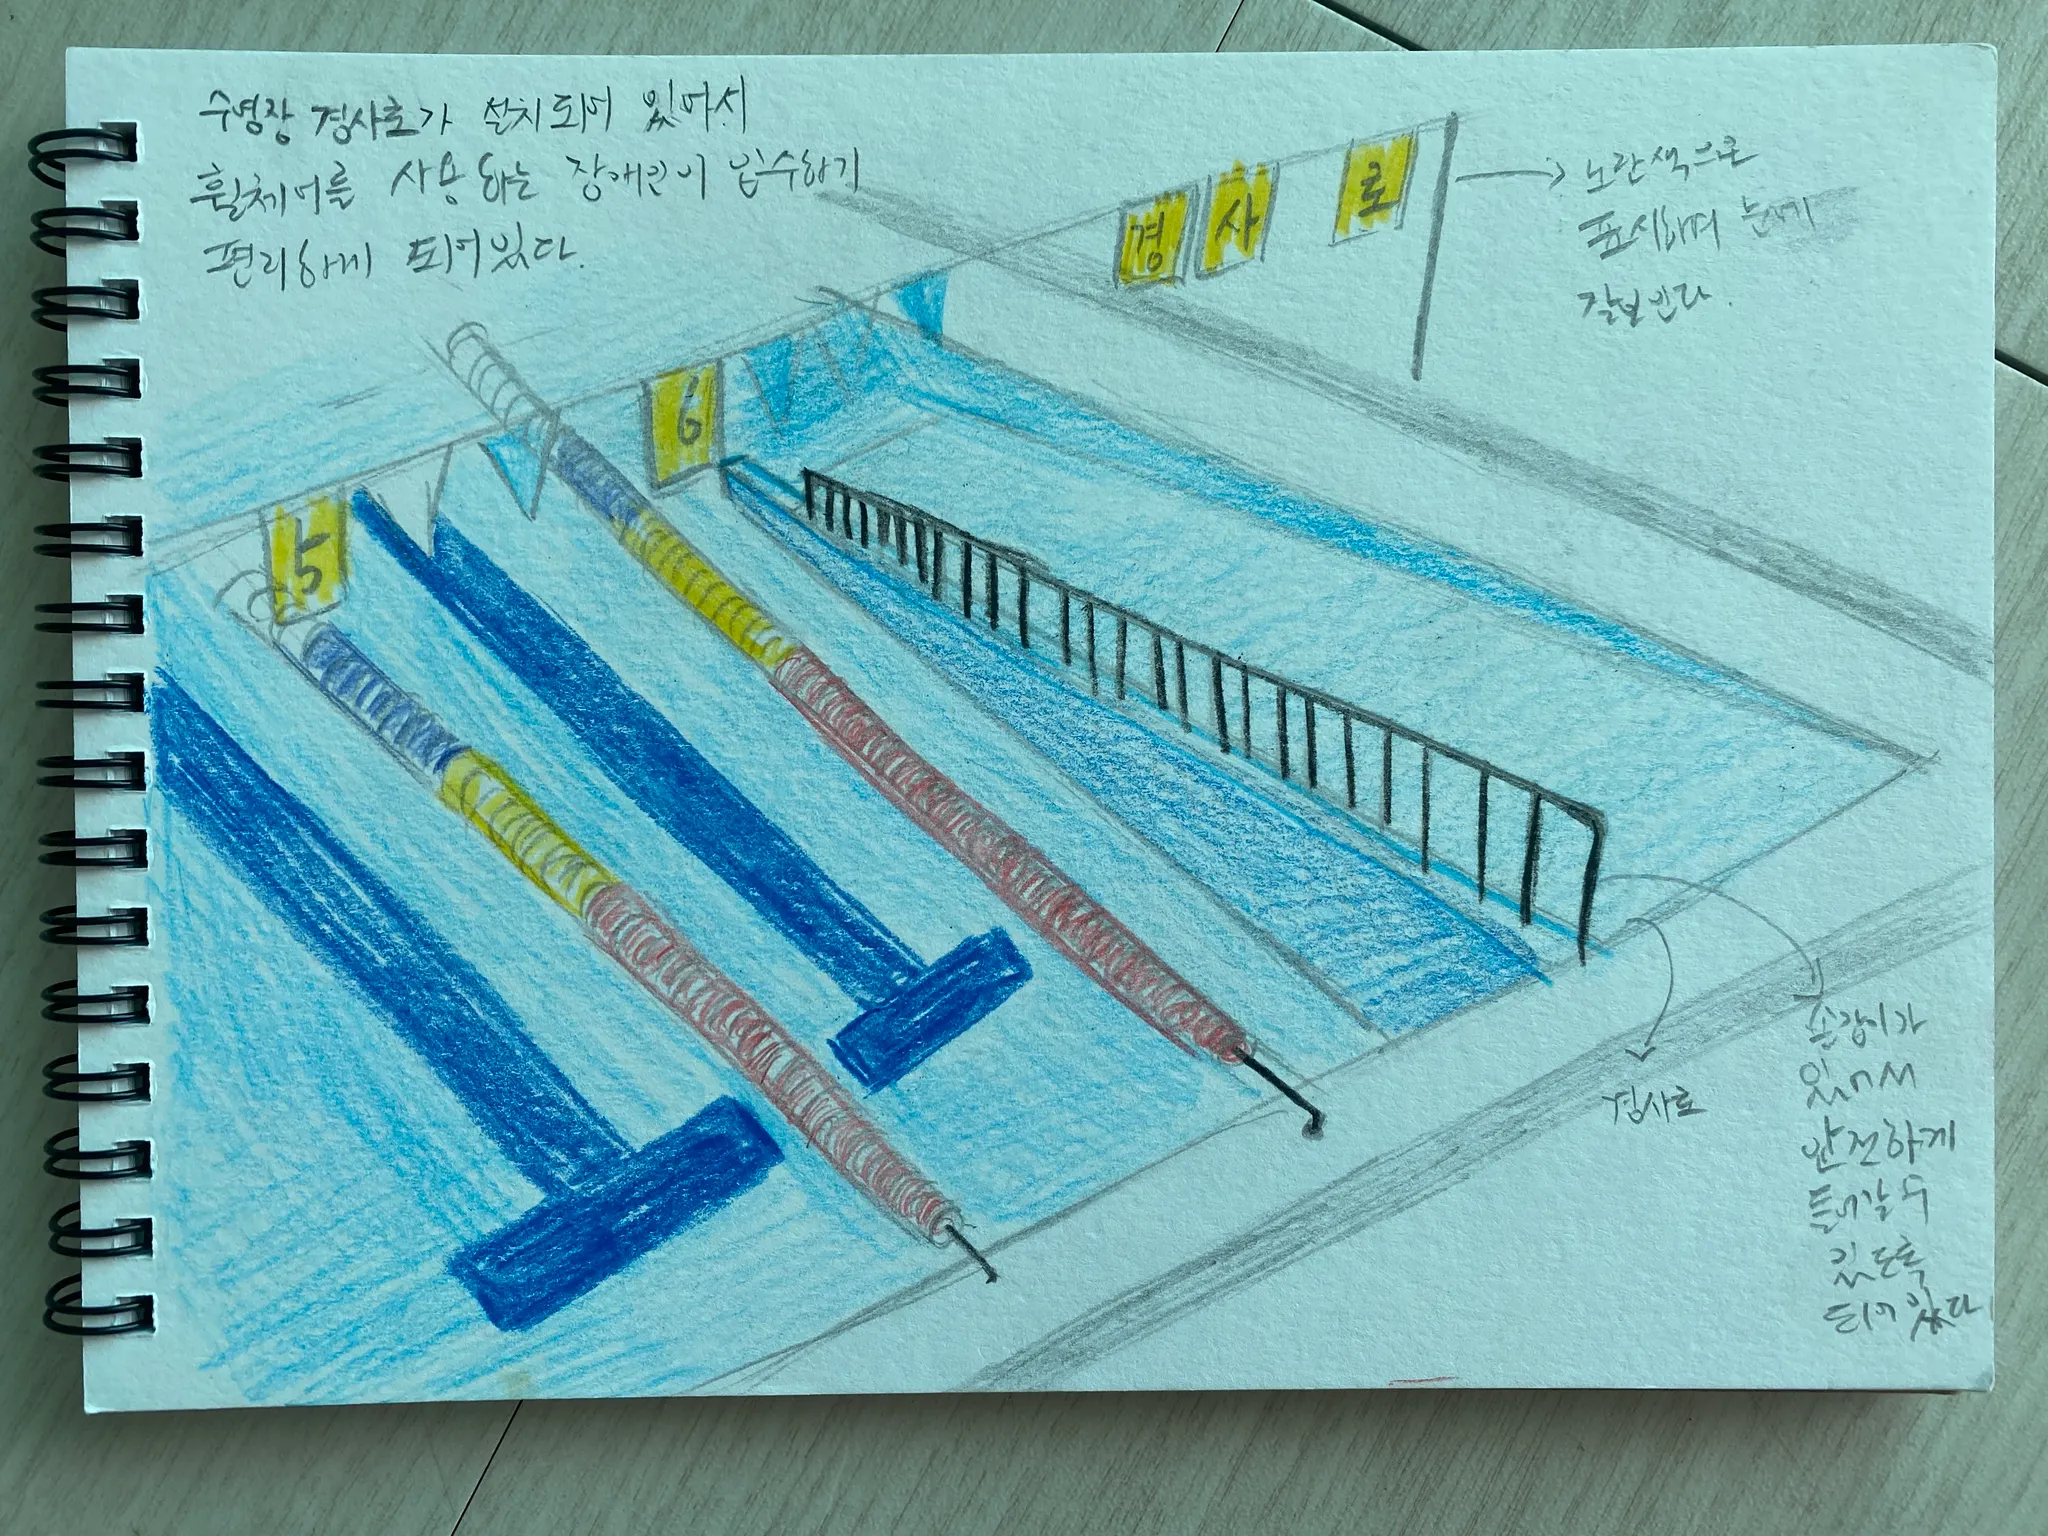 수영장 경사로가 설치되어 있어서
휠체어를 사용하는 장애인이 입수하기
편리하게 되어있다.
경 사 로
노란색으로
표시하여 눈에
잘보인다.
6
5
손잡이가
있어서
안전하게
들어갈 수
있도록
되어있다
경사로